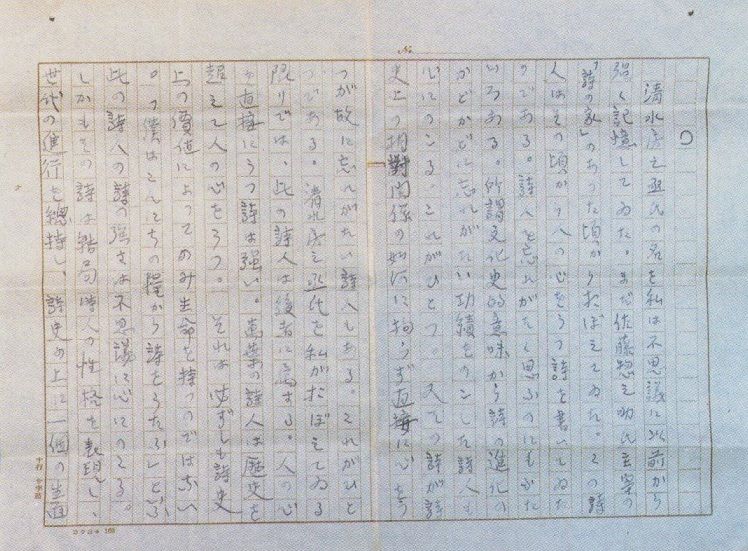 ○
清水房之丞氏の名を私は不思議に以前から
強く記憶してゐた。まだ佐藤惣之助氏主宰の
「詩の家」のあつた頃からおぼえてゐた。この詩
人はその頃から人の心をうつ詩を書いてゐた
のである。詩人を忘れがたく思ふのにもふた
いろある。所謂文化史的意味から詩の進化の
かどかどに忘れがたい功績をのこした詩人も
心にのこる。これがひとつ。又その詩が詩
史上の相對関係の如何に拘らず直接に心をう
つが故に忘れがたい詩人もある。これがひと
つである。清水房之丞氏を私がおぼえてゐる
限りでは、此の詩人は後者に属する。人の心
を直接にうつ詩は強い。萬葉の詩人は歴史を
超えて人の心をうつ。それは必ずしも詩史
上の價値によつてのみ生命を持つのではない
。
此の詩人の詩の強さは不思議に心にのこる。
しかもその詩は結局詩人の性格を表現し、
世代の進行を總持し、詩史の上に一個の生
コクヨ 165